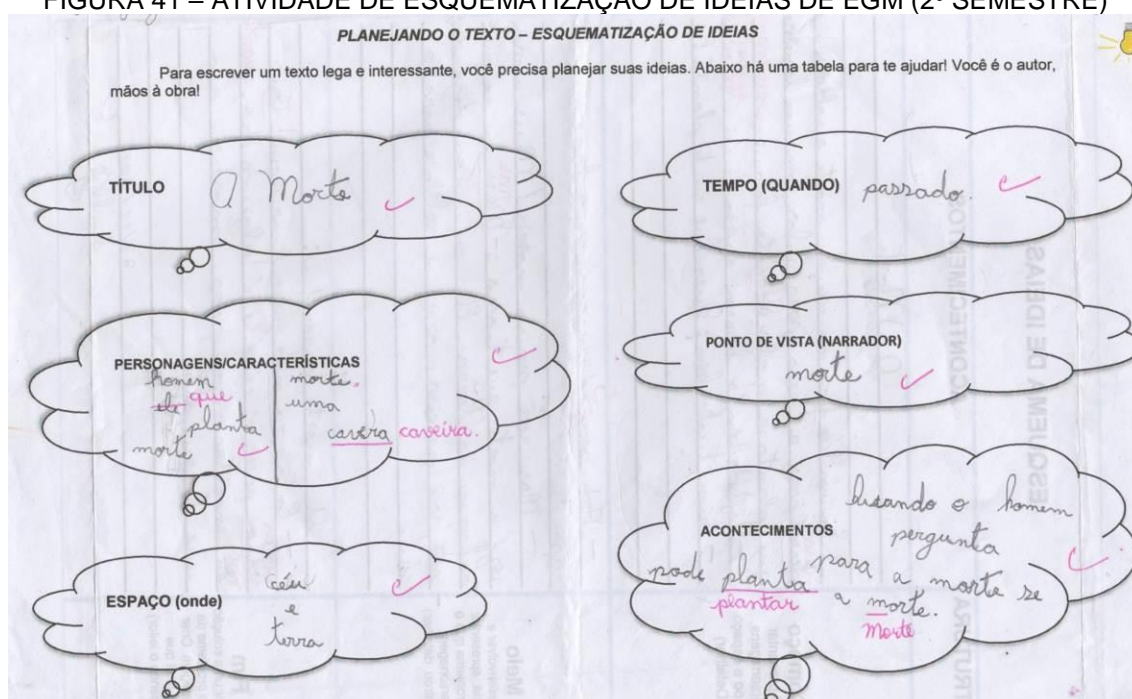 FIGURA 41 – ATIVIDADE DE ESQUEMATIZAÇÃO DE IDEIAS DE EGM (2º SEMESTRE)
PLANEJANDO O TEXTO – ESQUEMATIZAÇÃO DE IDEIAS
Para escrever um texto lega e interessante, você precisa planejar suas ideias. Abaixo há uma tabela para te ajudar! Você é o autor,
mãos à obra!
TÍTULO A Morte
PERSONAGENS/CARACTERÍSTICAS
homem
ele que
planta
morte
morte.
uma
cavera caveira.
ESPAÇO (onde)
céu
e
terra
TEMPO (QUANDO) passado.
PONTO DE VISTA (NARRADOR)
morte
ACONTECIMENTOS
o homem
pergunta
para a morte se
pode planta a morte.
plantar
Morte
ESQUEMA DE IDEIAS